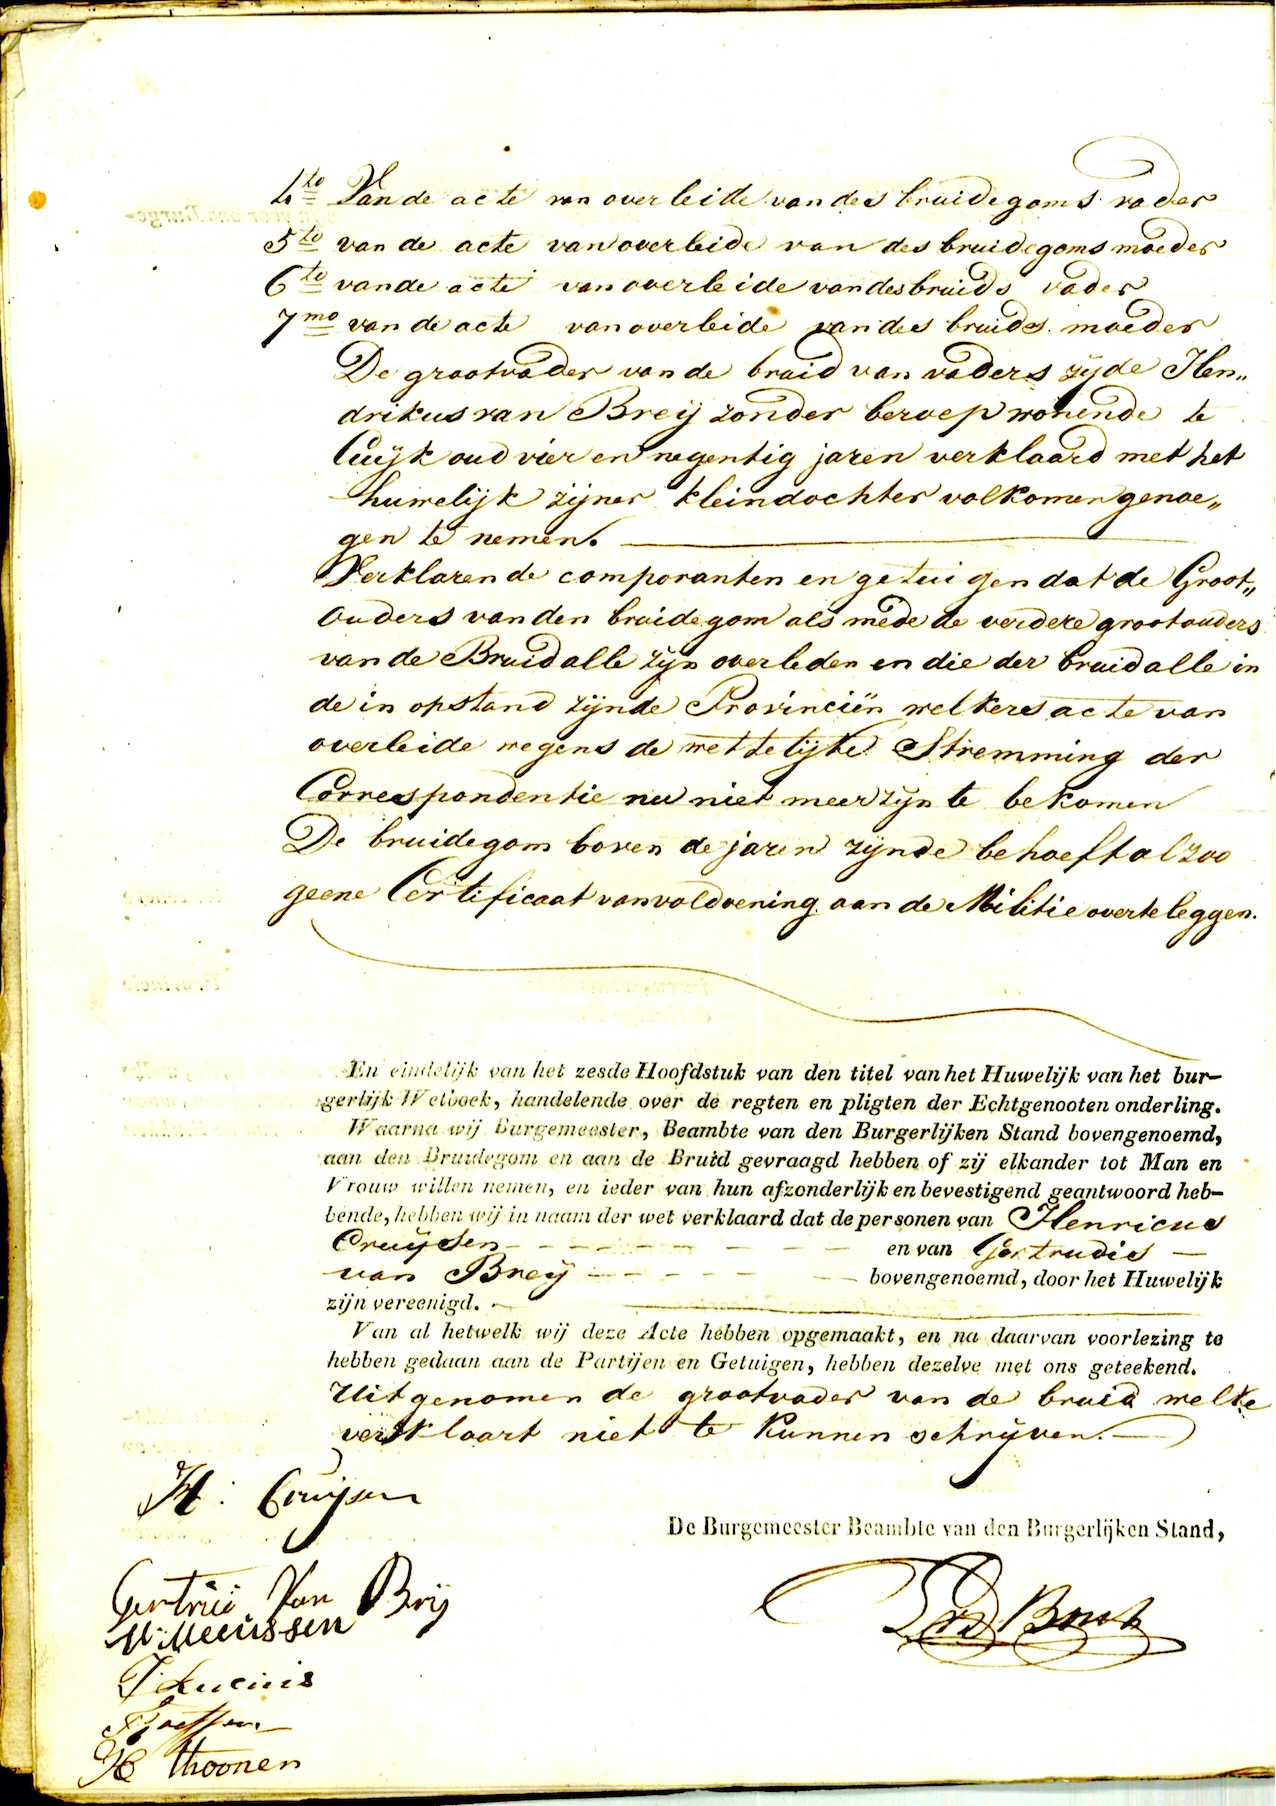 4to Van de acte van overleide van des bruidegoms vader
5to van de acte van overleide van des bruidegoms moeder
6to van de acte van overleide van des bruids vader
7mo van de acte van overleide van des bruids moeder
De grootvader van de bruid van vaders zijde Hen„
drikus van Breij zonder beroep wonende te
Cuijk oud vier en negentig jaren verklaard met het
huwelijk zijner kleindochter volkomen genoe„
gen te nemen.
Verklaren de comporanten en getuigen dat de Groot„
ouders van den bruidegom als mede de verdere grootouders
van de Bruid alle zijn overleden en die der bruid alle in
de in opstand zijnde Provinciën welkers acte van
overleide wegens de wettelijke Stremming der
Correspondentie nu niet meer zijn te bekomen
De bruidegom boven de jaren zijnde behoeft alzoo
geene Certificaat van voldoening aan de Militie over te leggen.
En eindelijk van het zesde Hoofdstuk van den titel van het Huwelijk van het bur-
gerlijk Wetboek, handelende over de regten en pligten der Echtgenooten onderling.
Waarna wij Burgemeester, Beambte van den Burgerlijken Stand bovengenoemd,
aan den Bruidegom en aan de Bruid gevraagd hebben of zij elkander tot Man en
Vrouw willen nemen, en ieder van hun afzonderlijk en bevestigend geantwoord heb-
bende, hebben wij in naam der wet verklaard dat de personen van Henricus
Cruijsen en van Gertrudis
van Breij bovengenoemd, door het Huwelijk
zijn vereenigd.
Van al hetwelk wij deze Acte hebben opgemaakt, en na daarvan voorlezing te
hebben gedaan aan de Partijen en Getuigen, hebben dezelve met ons geteekend.
Uitgenomen de grootvader van de bruid welke
verklaart niet te kunnen schrijven.
H: Cruijsen
De Burgemeester Beambte van den Burgerlijken Stand,
Gertrui Van Brij
M: Meeussen
J Lucius
H Thoonen